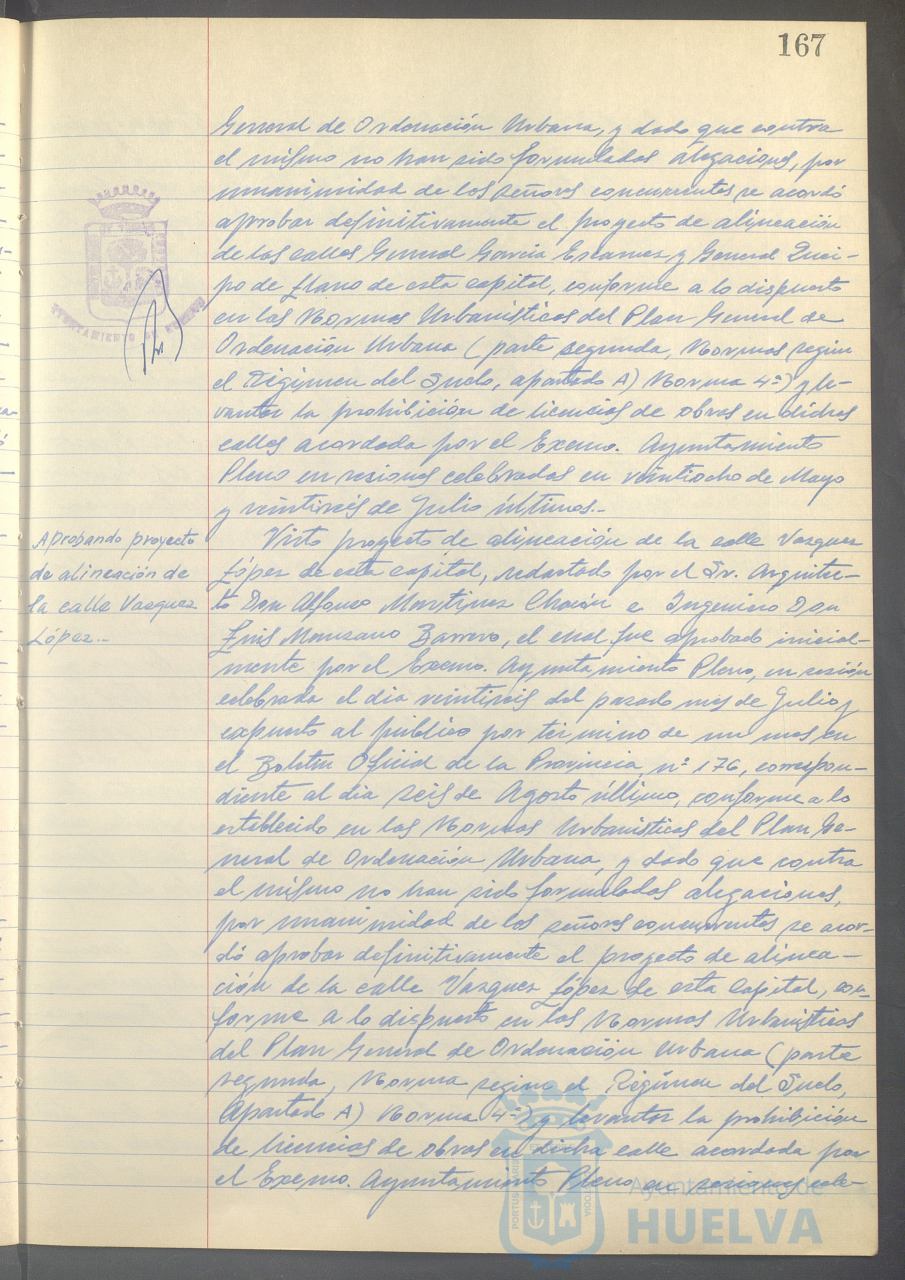 167
General de Ordenación Urbana, y dado que contra
el mismo no han sido formuladas alegaciones, por
unanimidad de los señores concurrentes se acordó
aprobar definitivamente el proyecto de alineación
de las calles General García Escamez y General Quei-
po de Llano de esta capital, conforme a lo dispuesto
en las Normas Urbanísticas del Plan General de
Ordenación Urbana (parte segunda, Normas según
el Régimen del Suelo, apartado A) Norma 4ª) y le-
vantar la prohibición de licencias de obras en dichas
calles acordada por el Excmo. Ayuntamiento
Pleno en sesiones celebradas en veintiocho de Mayo
y veintiséis de Julio últimos.-
Aprobando proyecto
de alineación de
la calle Vazquez
López.-
Visto proyecto de alineación de la calle Vazquez
López de esta capital, redactado por el Sr. Arquitec-
to Don Alfonso Martinez Chacón e Ingeniero Don
Luis Manzano Barrero, el cual fue aprobado inicial-
mente por el Excmo. Ayuntamiento Pleno, en sesión
celebrada el dia veintiseis del pasado mes de Julio y
expuesto al público por término de un mes en
el Boletín Oficial de la Provincia, nº 176, correspon-
diente al dia seis de Agosto último, conforme a lo
establecido en las Normas Urbanísticas del Plan Ge-
neral de Ordenación Urbana, y dado que contra
el mismo no han sido formuladas alegaciones,
por unanimidad de los señores concurrentes se acor-
dó aprobar definitivamente el proyecto de alinea-
ción de la calle Vazquez López de esta Capital, con-
forme a lo dispuesto en las Normas Urbanísticas
del Plan General de Ordenación Urbana (parte
segunda, Norma según el Régimen del Suelo,
Apartado A) Norma 4ª) y levantar la prohibición
de licencias de obras en dicha calle acordada por
el Excmo. Ayuntamiento Pleno en sesiones cele-
Ayuntamiento de
HUELVA